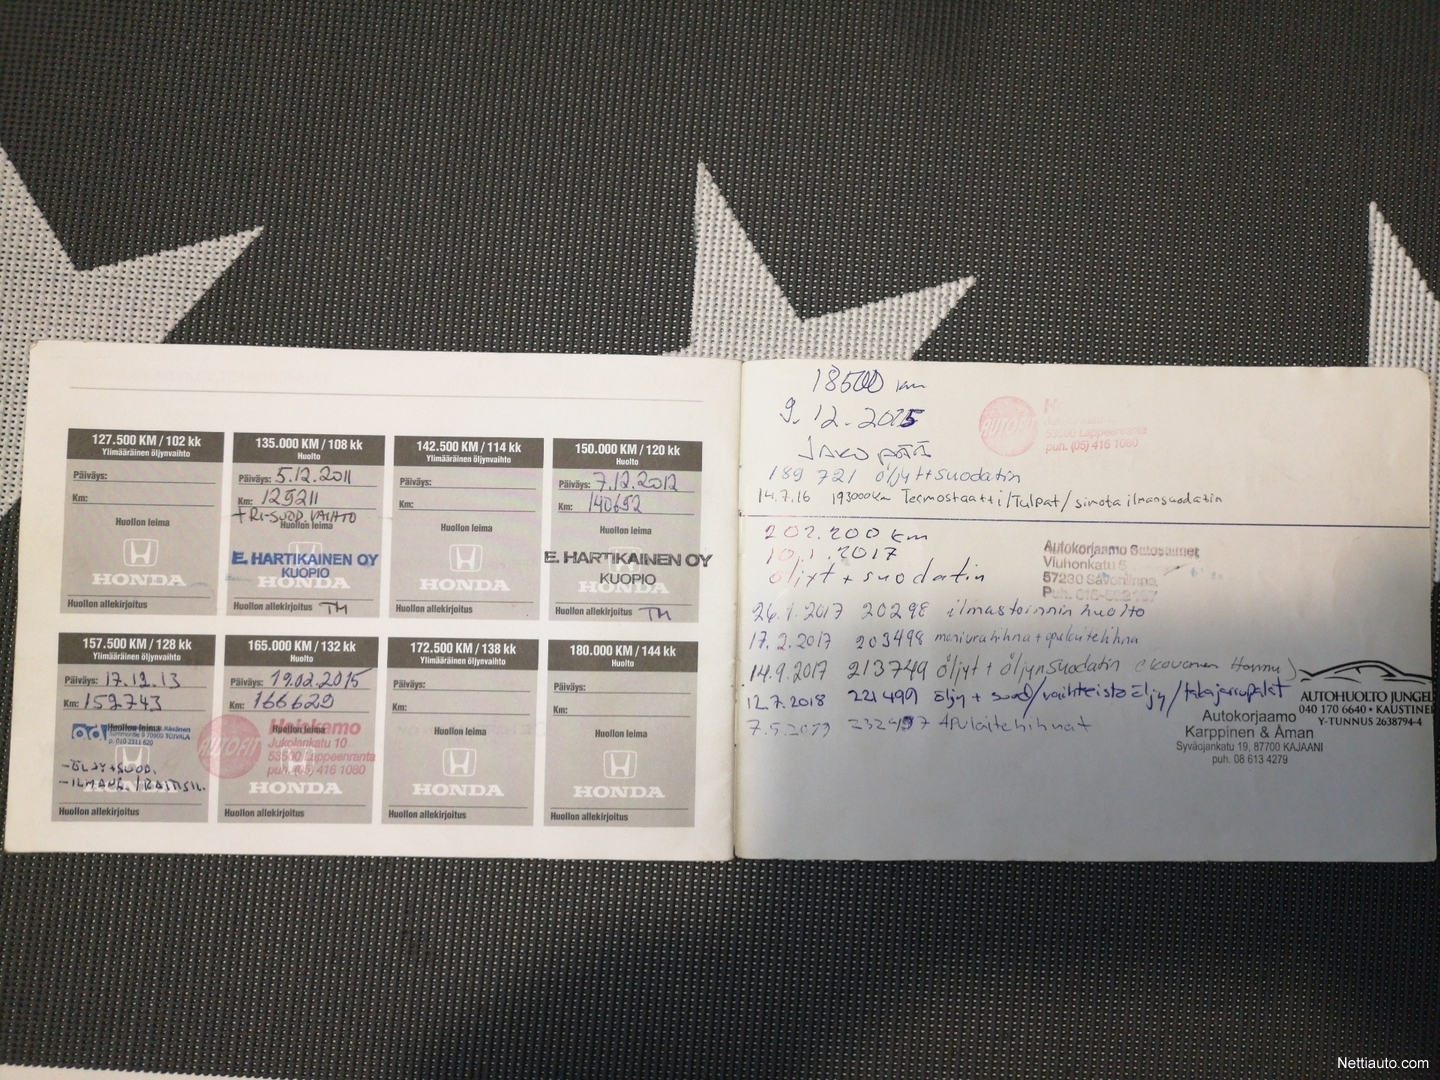 127.500 KM / 102 kk
Ylimääräinen öljynvaihto
Päiväys:
Km:
Huollon leima
HONDA
Huollon allekirjoitus
135.000 KM / 108 kk
Huolto
Päiväys: 5.12.2011
Km: 129211
+RI-SUOD. VAIHTO
Huollon leima
E. HARTIKAINEN OY
KUOPIO
HONDA
Huollon allekirjoitus TM
142.500 KM / 114 kk
Ylimääräinen öljynvaihto
Päiväys:
Km:
Huollon leima
HONDA
Huollon allekirjoitus
150.000 KM / 120 kk
Huolto
Päiväys: 7.12.2012
Km: 140652
Huollon leima
E. HARTIKAINEN OY
KUOPIO
HONDA
Huollon allekirjoitus TM
157.500 KM / 128 kk
Ylimääräinen öljynvaihto
Päiväys: 17.12.13
Km: 152743
Huollon leima
ad
70900 TOIVALA
-ÖLJY+SUOD.
HONDA
Huollon allekirjoitus
165.000 KM / 132 kk
Huolto
Päiväys: 19.02.2015
Km: 166629
Huollon leima
AUTOFIT
Jukolankatu 10
53500 Lappeenranta
puh. (05) 416 1080
HONDA
Huollon allekirjoitus
172.500 KM / 138 kk
Ylimääräinen öljynvaihto
Päiväys:
Km:
Huollon leima
HONDA
Huollon allekirjoitus
180.000 KM / 144 kk
Huolto
Päiväys:
Km:
Huollon leima
HONDA
Huollon allekirjoitus
18500 km
9.12.2015
JAKOPÄÄ
AUTOFIT
Lappeenranta
puh. (05) 416 1080
189 721 öljyt+suodatin
14.7.16 193000km Termostaatti/Tulpat/ ilmansuodatin
202.200 km
10.1.2017
öljyt + suodatin
Autokorjaamo
57230 Savonlinna
26.1.2017 20298 ilmastoinnin huolto
17.2.2017 203498
14.9.2017 213749 öljyt + öljynsuodatin
12.7.2018 221499 öljy + suod/vaihteisto öljy/takajarrupalat
7.5.2019 Apulaitehihnat
AUTOHUOLTO JUNGEL
040 170 6640 • KAUSTINEN
Y-TUNNUS 2638794-4
Autokorjaamo
Karppinen & Åman
Syväojankatu 19, 87700 KAJAANI
puh. 08 613 4279
Nettiauto.com